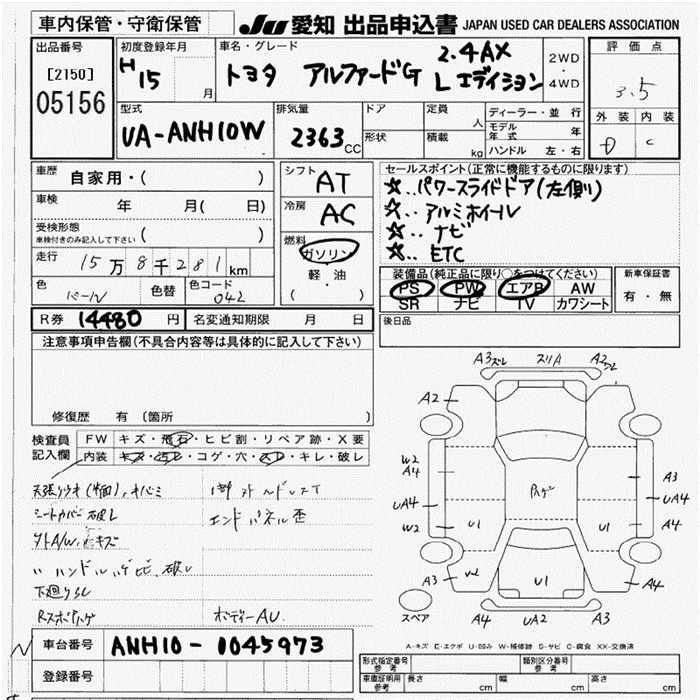 車内保管・守衛保管
JU 愛知 出品申込書 JAPAN USED CAR DEALERS ASSOCIATION
出品番号
[2150]
05156
初度登録年月
H15 月
車名・グレード
トヨタ アルファードG 2.4AX
Lエディション
2WD
・
4WD
評価点
3.5
外装 内装
D C
型式
UA-ANH10W
排気量
2363cc
ドア
形状
定員 人
積載 kg
ディーラー・並行
モデル年式 年
ハンドル 左・右
車歴
自家用・( )
車検 年 月( 日)
受検形態
車検付きのみ記入して下さい ( )
走行 15万8千281km
色 パール 色替 色コード 042
シフト AT
冷房 AC
燃料
ガソリン
軽・油
( )
セールスポイント(正常に機能するものに限ります)
☆..パワースライドドア(左側)
☆..アルミホイール
☆..ナビ
☆..ETC
装備品(純正品に限り○をつけてください)
PS PW エアB AW
SR ナビ TV カワシート
新車保証書
有・無
R券 14480円 名変通知期限 月 日
後日品
注意事項申告欄(不具合内容等は具体的に記入して下さい)
修復歴 有 (箇所
検査員記入欄
FW キズ・飛石・ヒビ割・リペア跡・X要
内装 キズ・汚レ・コゲ・穴・スレ・キレ・破レ
シートカバー破レ
エンドパネル歪
タトA/W キズ
下廻りサビ
ボデーAU.
A3 スレ スリA A2
A2
W2
A4
UA4
W2
A3
U2
U1
Rハゲ
U1
U1
A3
UA4
A4
A4
スペア
A4 UA2 A3
A-キズ E-エクボ U-凹み W-補修跡 S-サビ C-腐食 XX-交換済
車台番号 ANH10-0045973
登録番号
型式指定番号 参考
類別区分番号 参考
車庫証明用 参考 長さ cm 幅 cm 高さ cm